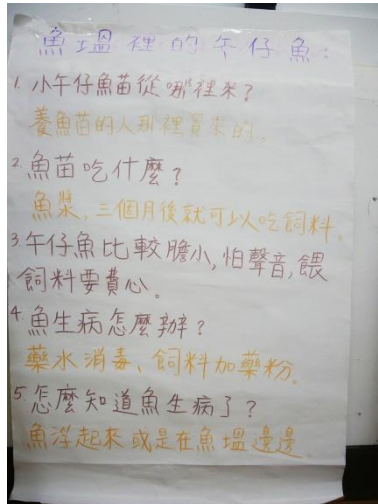 魚塭裡的午仔魚：
1. 小午仔魚苗從哪裡來？
養魚苗的人那裡買來的。
2. 魚苗吃什麼？
魚漿，三個月後就可以吃飼料。
3. 午仔魚比較膽小，怕聲音，餵
飼料要費心。
4. 魚生病怎麼辦？
藥水消毒、飼料加藥粉。
5. 怎麼知道魚生病了？
魚浮起來或是在魚塭邊邊